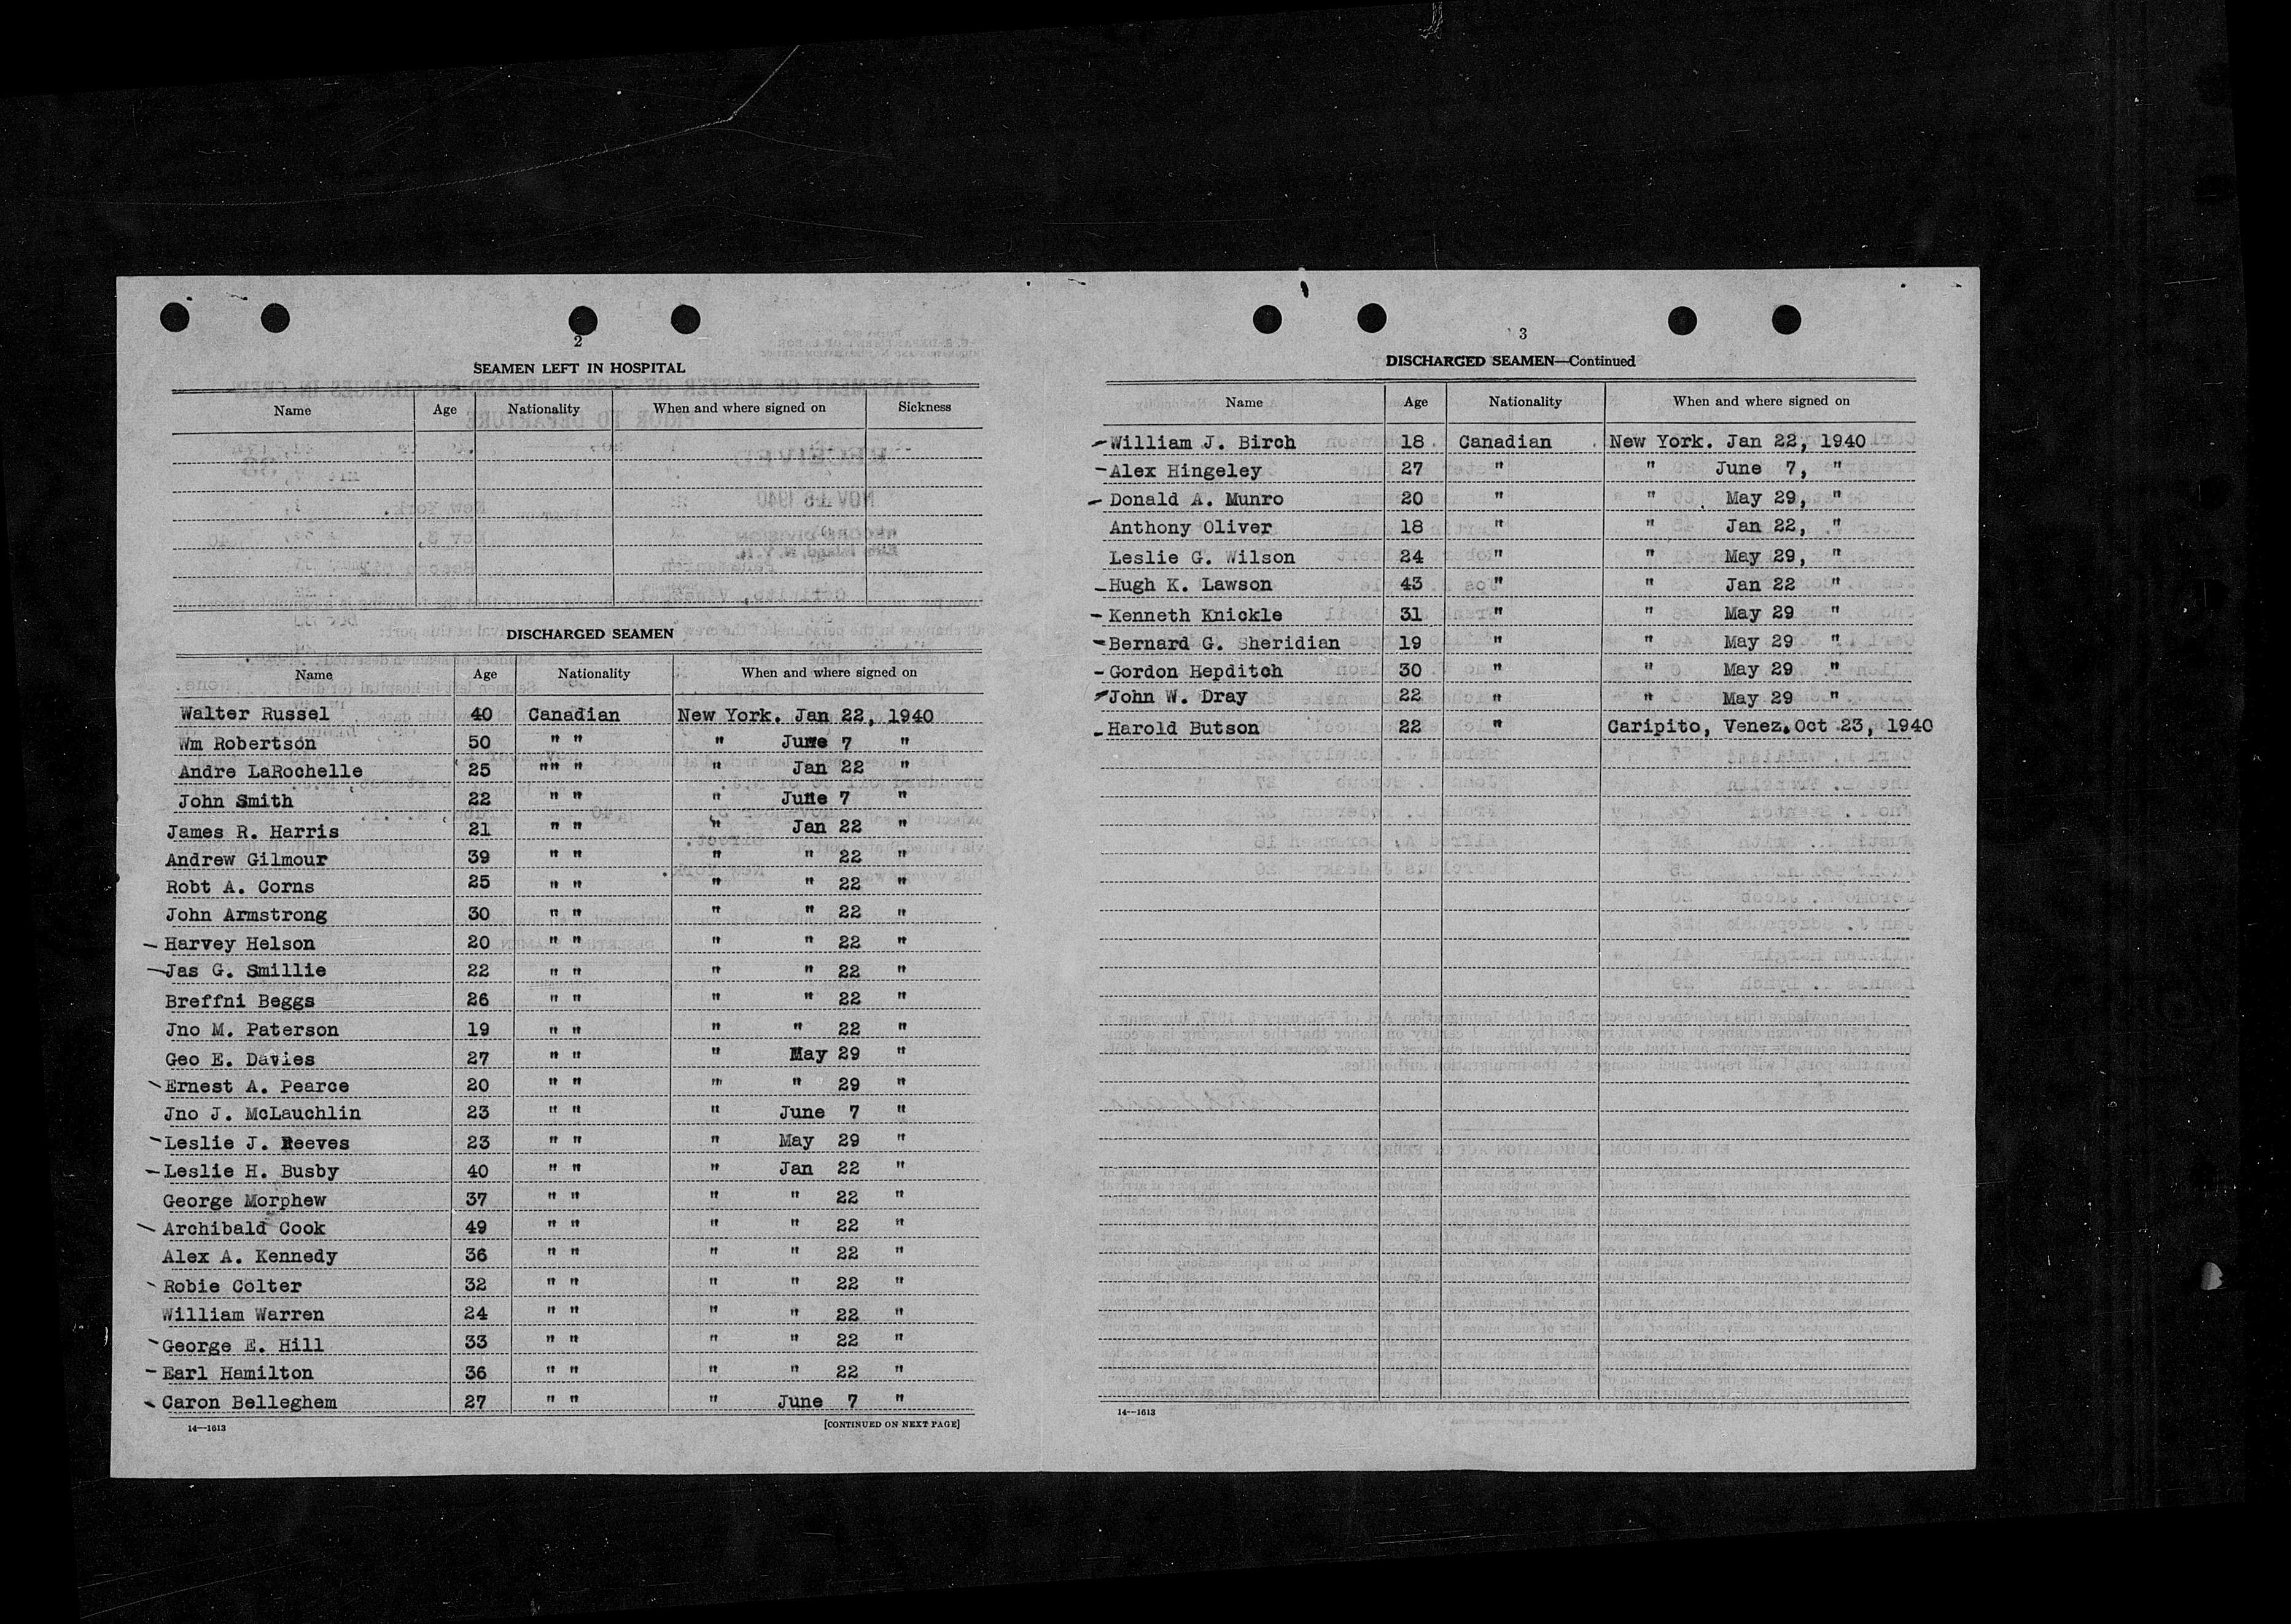 2
SEAMEN LEFT IN HOSPITAL
Name Age Nationality When and where signed on Sickness
DISCHARGED SEAMEN
Name Age Nationality When and where signed on
Walter Russel 40 Canadian New York. Jan 22, 1940
Wm Robertson 50 " " " June 7 "
Andre LaRochelle 25 "" " " Jan 22 "
John Smith 22 " " " June 7 "
James R. Harris 21 " " " Jan 22 "
Andrew Gilmour 39 " " " " 22 "
Robt A. Corns 25 " " " " 22 "
John Armstrong 30 " " " " 22 "
- Harvey Helson 20 " " " " 22 "
- Jas G. Smillie 22 " " " " 22 "
Breffni Beggs 26 " " " " 22 "
Jno M. Paterson 19 " " " " 22 "
Geo E. Davies 27 " " " May 29 "
- Ernest A. Pearce 20 " " " " 29 "
Jno J. McLauchlin 23 " " " June 7 "
- Leslie J. Reeves 23 " " " May 29 "
- Leslie H. Busby 40 " " " Jan 22 "
George Morphew 37 " " " " 22 "
- Archibald Cook 49 " " " " 22 "
Alex A. Kennedy 36 " " " " 22 "
- Robie Colter 32 " " " " 22 "
William Warren 24 " " " " 22 "
- George E. Hill 33 " " " " 22 "
- Earl Hamilton 36 " " " " 22 "
- Caron Belleghem 27 " " " June 7 "
14—1613 [CONTINUED ON NEXT PAGE]
3
DISCHARGED SEAMEN—Continued
Name Age Nationality When and where signed on
- William J. Birch 18 Canadian New York. Jan 22, 1940
- Alex Hingeley 27 " " June 7, "
- Donald A. Munro 20 " " May 29, "
Anthony Oliver 18 " " Jan 22, "
Leslie G. Wilson 24 " " May 29, "
- Hugh K. Lawson 43 " " Jan 22 "
- Kenneth Knickle 31 " " May 29 "
- Bernard G. Sheridian 19 " " May 29 "
- Gordon Hepditch 30 " " May 29 "
- John W. Dray 22 " " May 29 "
- Harold Butson 22 " Caripito, Venez. Oct 23, 1940
14—1613